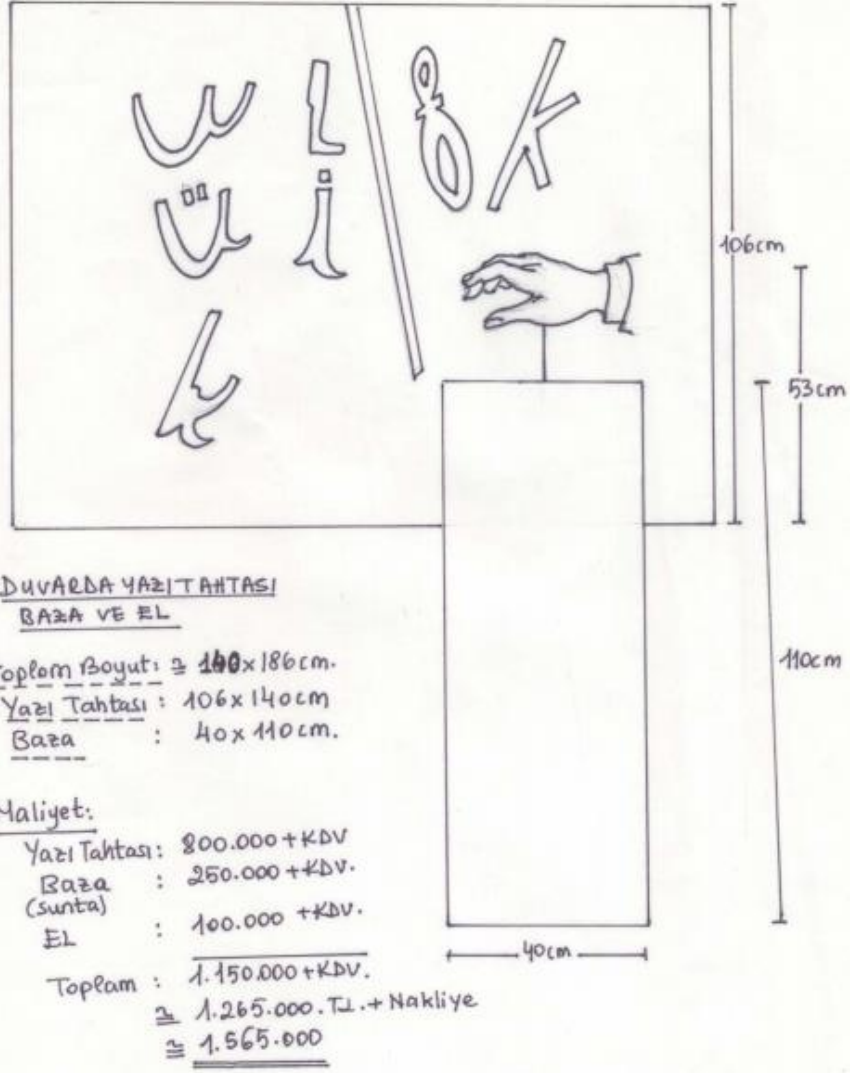 106cm
53cm
110cm
40cm
DUVARDA YAZI TAHTASI
BAZA VE EL
Toplam Boyut: ≅ 140x186cm.
Yazı Tahtası : 106x140cm
Baza : 40x110cm.
Maliyet:
Yazı Tahtası: 800.000+KDV
Baza : 250.000+KDV.
(sunta)
EL : 100.000 +KDV.
Toplam : 1.150.000+KDV.
≅ 1.265.000.TL.+Nakliye
≅ 1.565.000